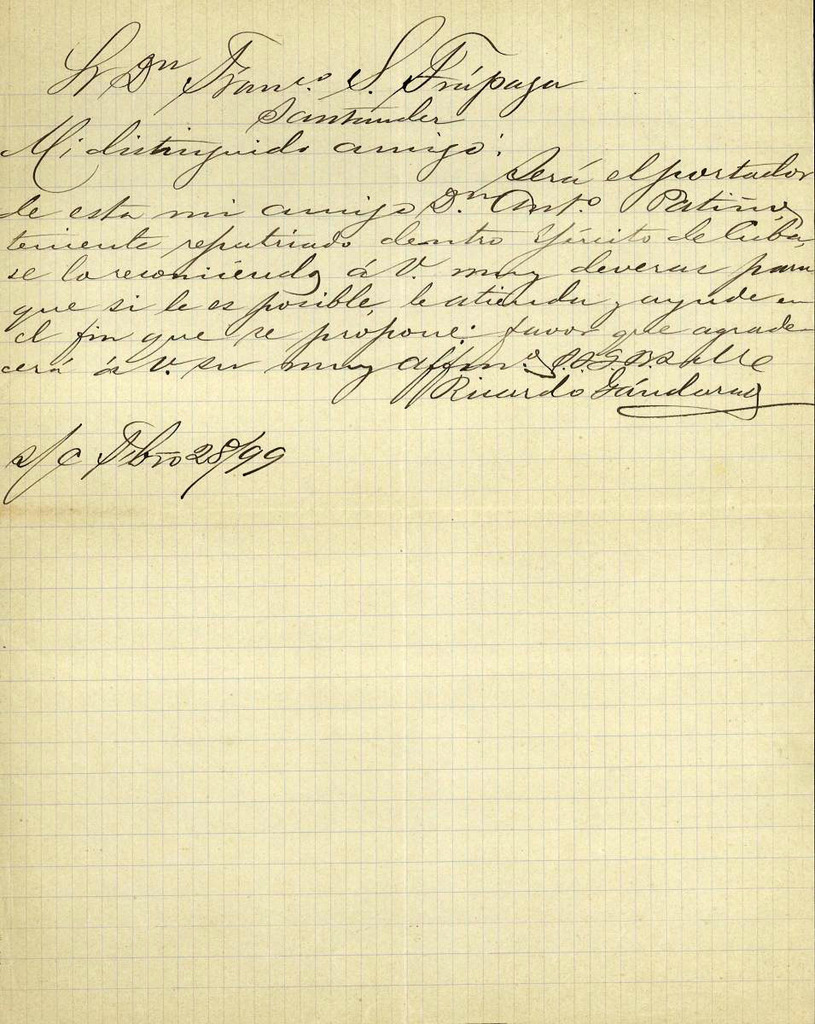 Sr Dn Franco. S. Trápaga
Santander
Mi distinguido amigo:
Será el portador
de esta mi amigo Dn. Anto. Patiño,
teniente repatriado dentro Ejército de Cuba,
se lo recomiendo á V. muy deveras para
que si le es posible, le atienda y ayude en
el fin que se propone: favor que agrade-
cerá á V. su muy affmo.
Ricardo Gándara
s/c Febro 28/99